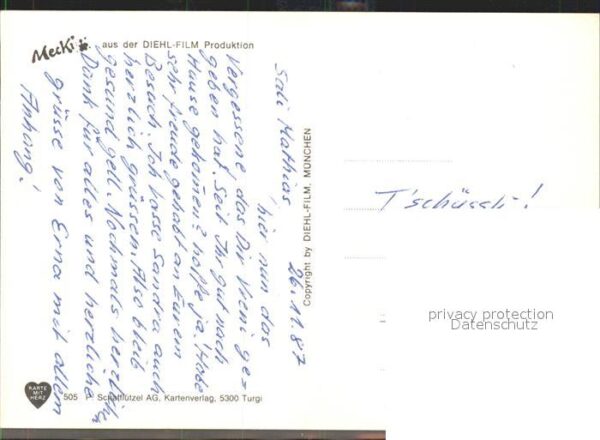 Mecki aus der DIEHL-FILM Produktion
26.11.87
Sali Matthias
hier nun das
Vergessene das Dir Vreni ge=
geben hat. Seit Ihr gut nach
Hause gekommen? hoffe ja! Habe
sehr freude gehabt an Eurem
Besuch. Ich lasse Sandra auch
herzlich grüssen. Also bleib
gesund gell. Nochmals herzlich
Dank für alles und herzliche
grüsse von Erna mit allem
Anhang!
T'schüssli-!
Copyright by DIEHL-FILM, MÜNCHEN
privacy protection
Datenschutz
KARTE
MIT
HERZ
505 P. Schaffützel AG, Kartenverlag, 5300 Turgi